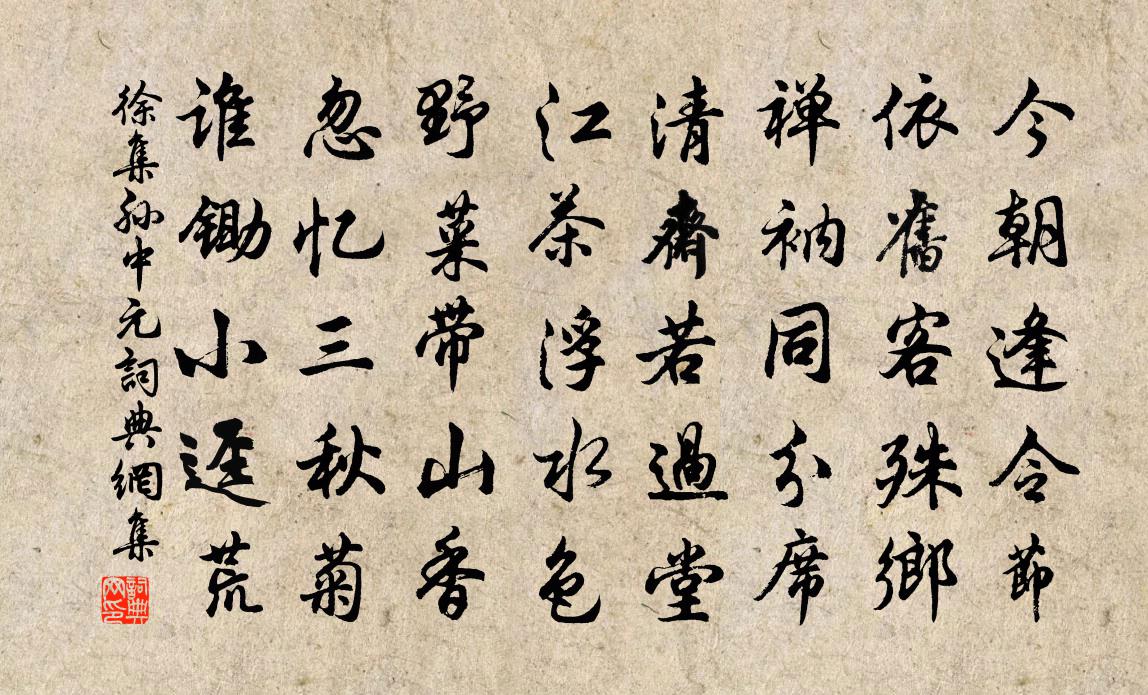 今朝逢令節
依舊客殊鄉
禅衲同分席
清齋若過堂
江茶浮水色
野菜帶山香
忽忆三秋菊
谁鋤小逕荒
徐集孙中元詞典網集
詞典網印